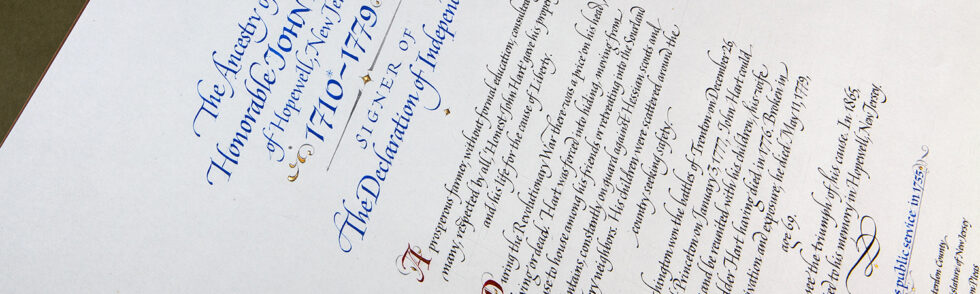 The Ancestry of
Honorable JOHN
of Hopewell, New Jer
1710~1779
SIGNER OF
The Declaration of Independ
A prosperous farmer, without formal education, consulted
many, respected by all, 'Honest John Hart' gave his proper
and his life for the cause of Liberty.
During the Revolutionary War there was a 'price on his head,
or dead. Hart was forced into hiding, moving from
se to house among his friends or retreating into the Sourland
constantly on guard against Hessian scouts and
ry neighbors. His children were scattered around the
country seeking safety.
hington won the battles of Trenton on December 26,
Princeton on January 3, 1777, John Hart could
and be reunited with his children, his wife
Hart having died in 1776. Broken in
and exposure, he died May 11, 1779,
age 69.
the triumph of his cause. In 1865,
ed to his memory in Hopewell, New Jersey.
public service in 1755
County
of New Jersey
Pleas